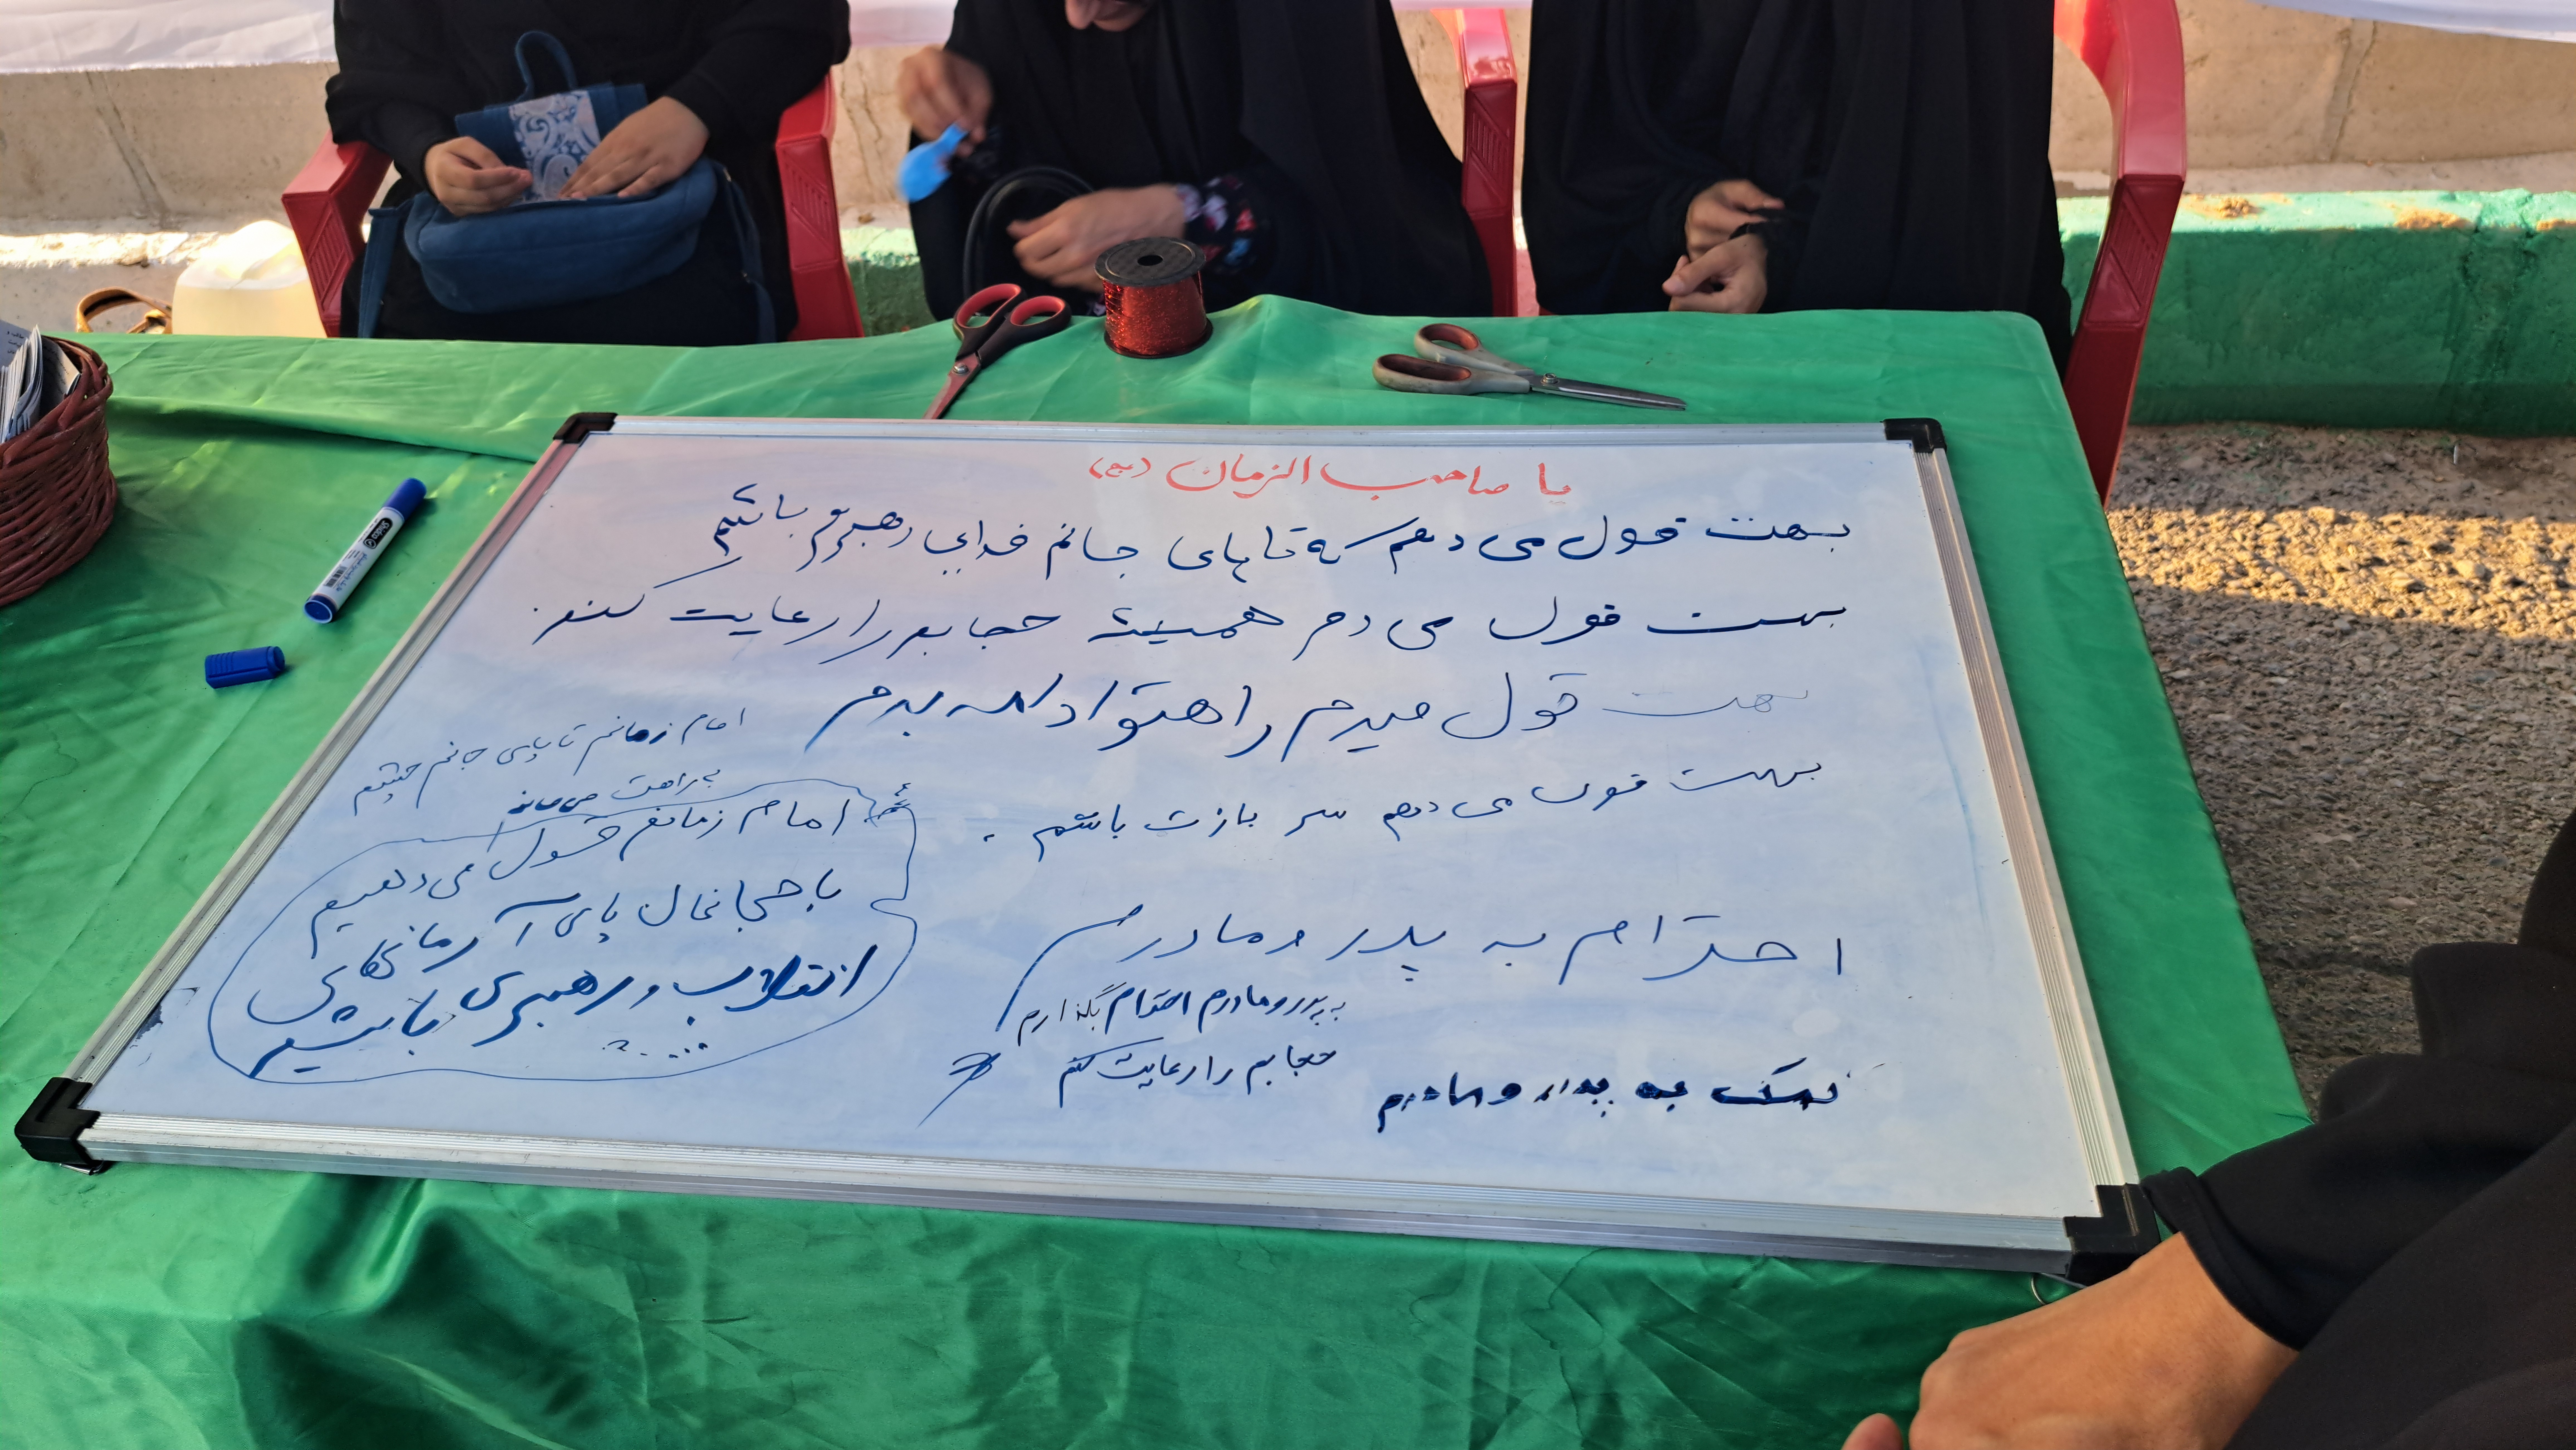 یا صاحب الزمان (عج)
بهت قول می دهم که تا پای جانم فدایی رهبرم باشم
بهت قول می دم همیشه حجابم را رعایت کنم.
بهت قول میدم راهتو ادامه بدم
بهت قول می دهم سربازت باشم.
امام زمانم تا پای جانم
به راهت می مانم
امام زمانم قول می دهیم
با حجابمان پای آرمانهای
انقلاب و رهبری باشیم
احترام به پدر و مادرم
به پدر و مادرم احترام بگذارم
حجابم را رعایت کنم
کمک به پدر و مادرم